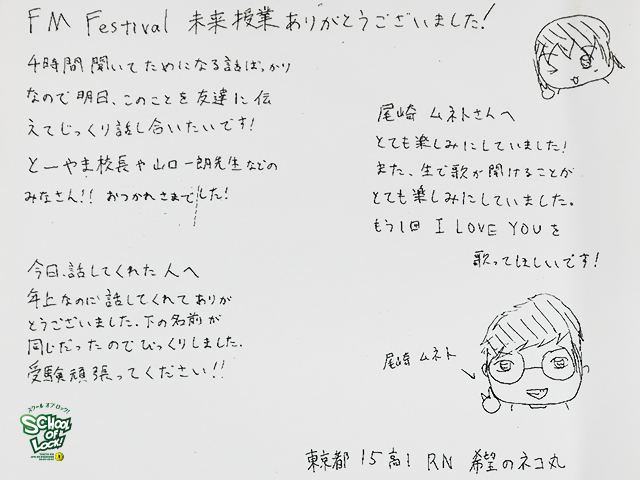 FM Festival 未来授業ありがとうございました!
4時間聞いてためになる話ばっかり
なので明日、このことを友達に伝
えてじっくり話し合いたいです!
とーやま校長や山口一朗先生などの
みなさん!! おつかれさまでした!
尾崎 ムネトさんへ
とても楽しみにしていました!
また、生で歌が聞けることが
とても楽しみにしていました。
もう1回 I LOVE YOUを
歌ってほしいです!
今日、話してくれた人へ
年上なのに話してくれてありが
とうございました。下の名前が
同じだったのでびっくりしました。
受験頑張ってください!!
尾崎 ムネト
スクール オブ ロック!
SCHOOL OF LOCK!
東京都 15 高1 RN 希望のネコ丸